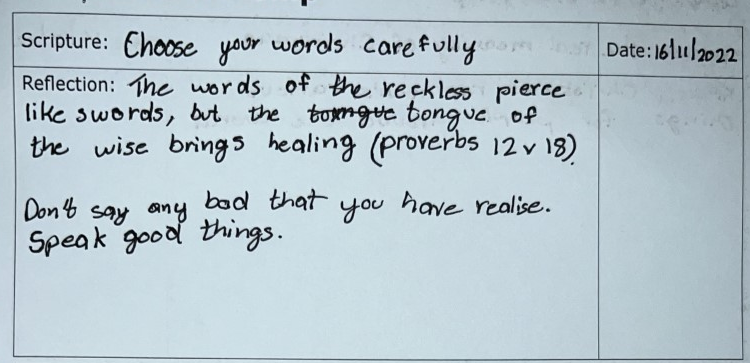 Scripture: Choose your words carefully
Date: 16/11/2022
Reflection: The words of the reckless pierce
like swords, but the tongue of
the wise brings healing (proverbs 12 v 18)
Don't say any bad that you have realise.
Speak good things.